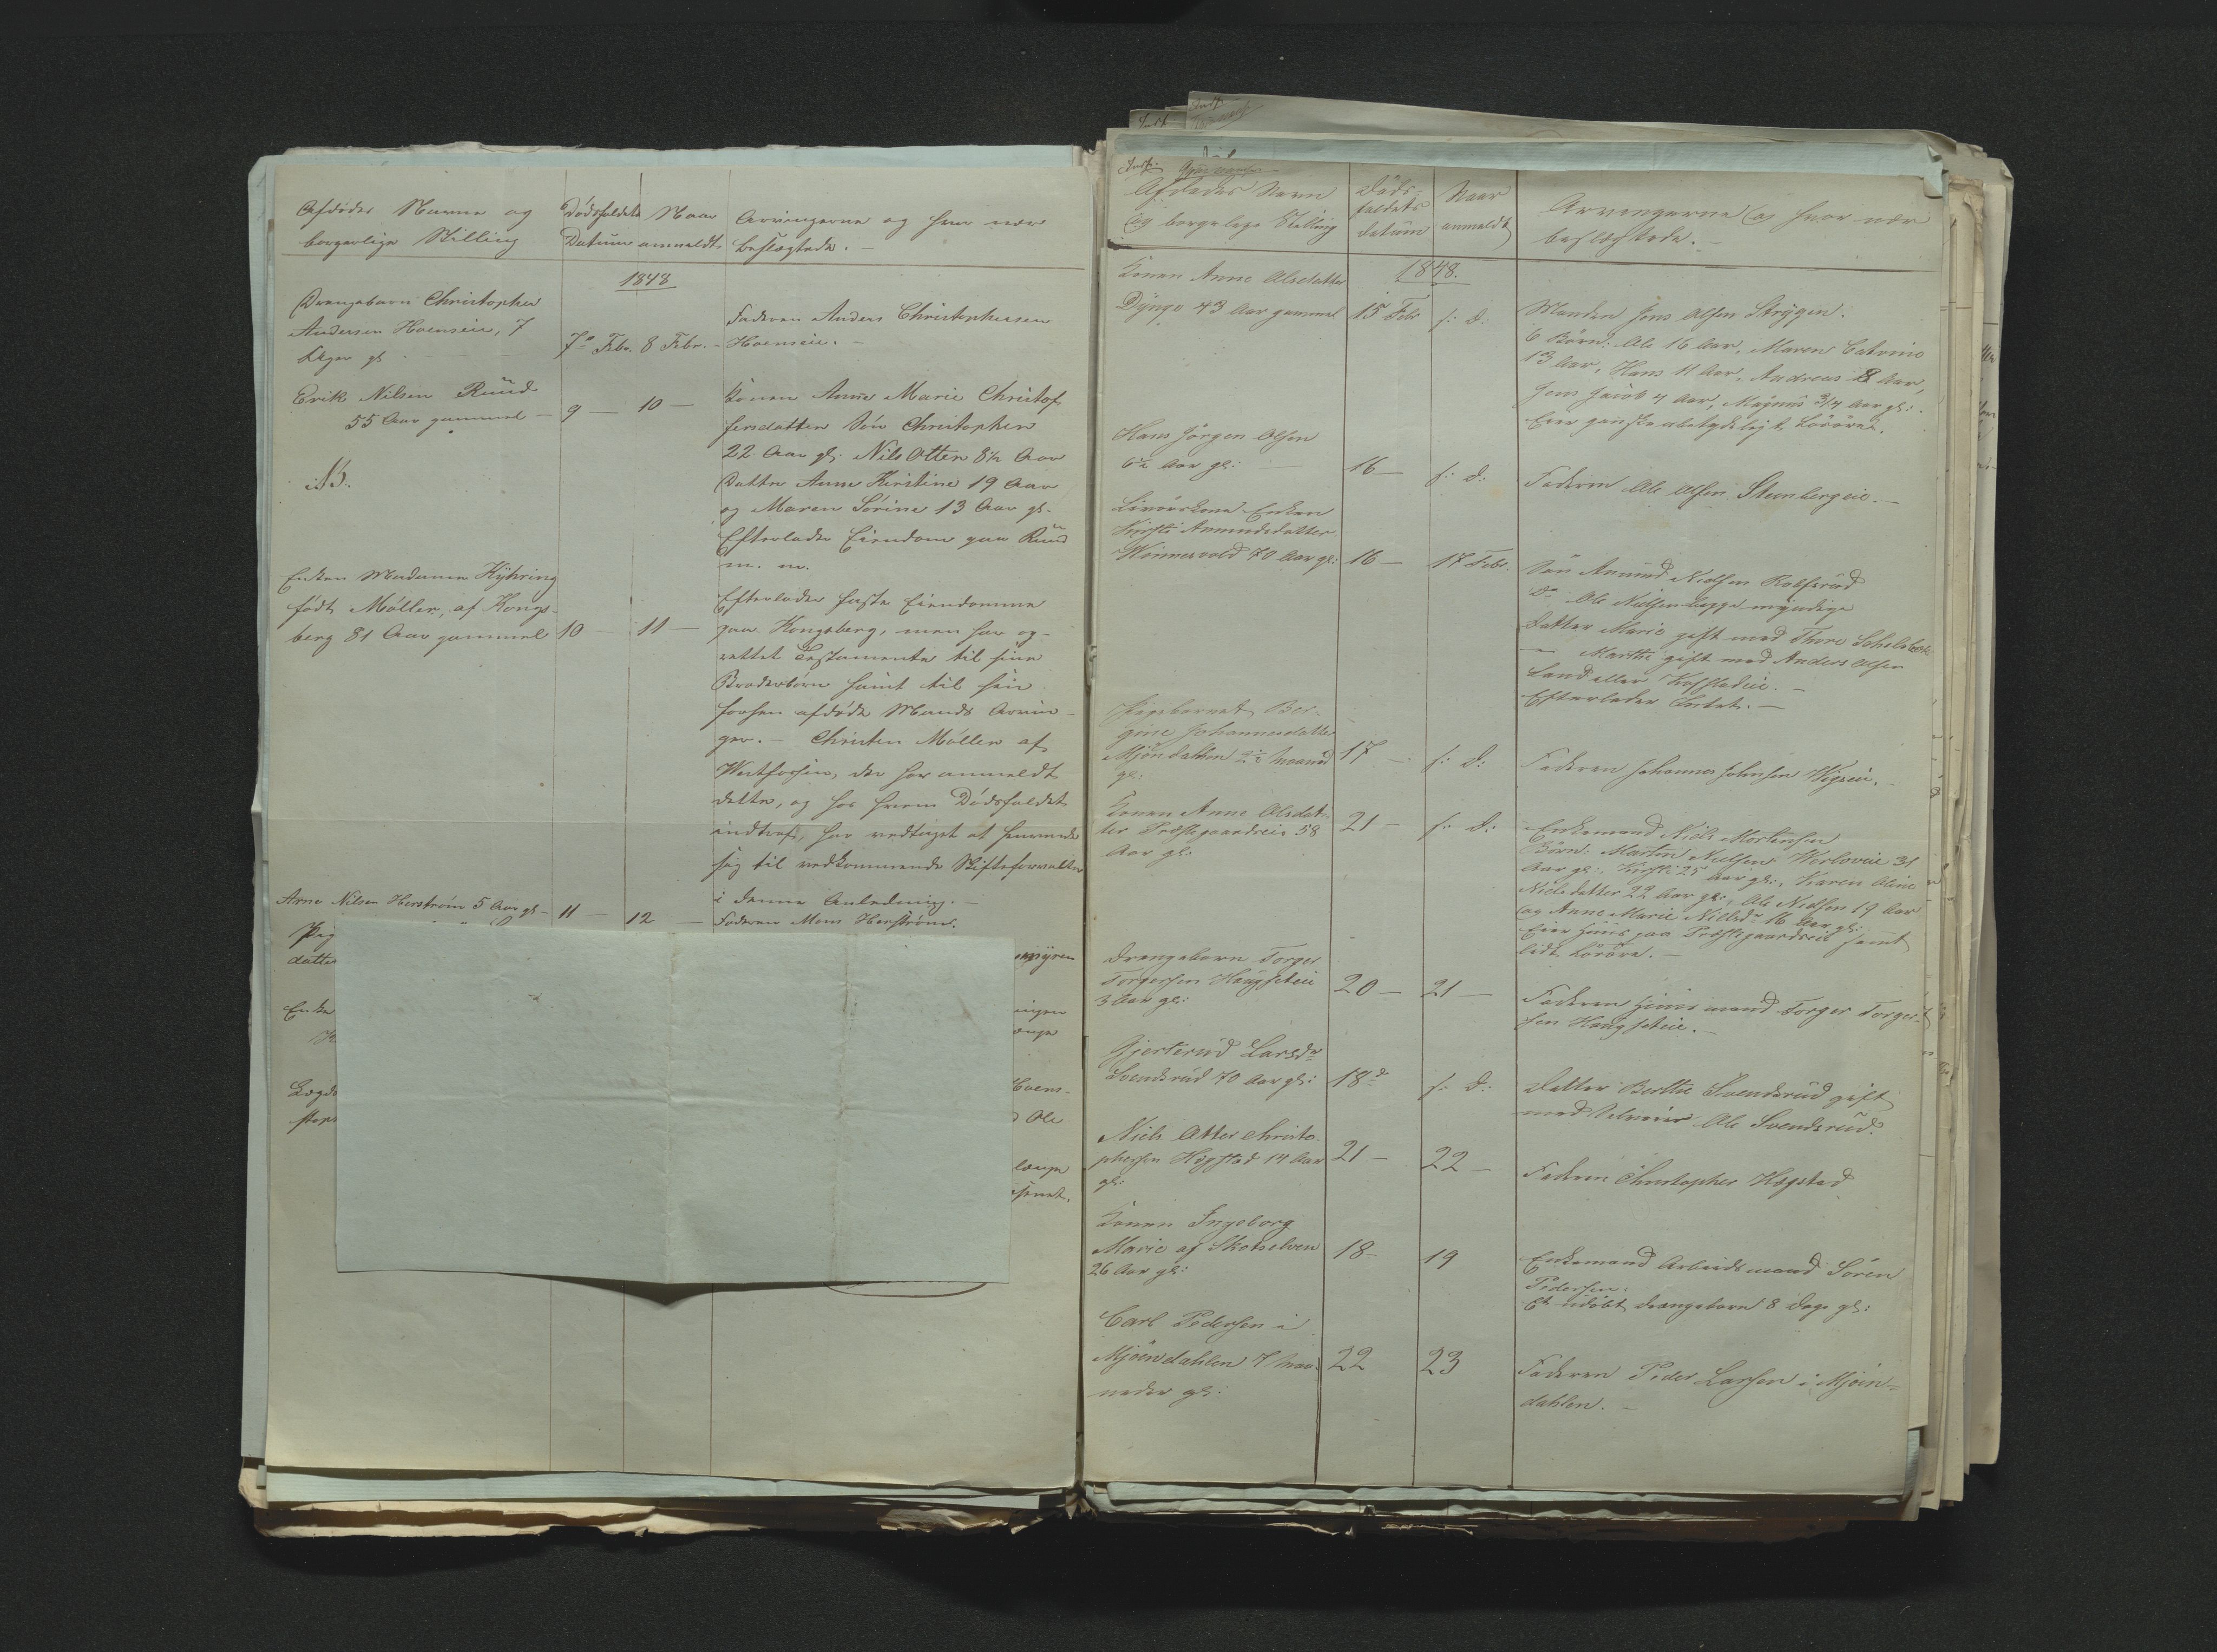 Afdødes Navne og
borgerlige Stilling
Dødsfaldets
Datum
Naar
anmeldt
Arvingerne og hvor nær
beslægtede. —
1848
Drengebarn Christopher
Andersen Hoenseie, 7
Uger gl
7de Febr. 8 Febr. —
Faderen Anders Christophersen
Hoenseie. —
Erik Nilsen Ruud
55 Aar gammel —
9 — 10 —
Konen Anne Marie Christof
fersdatter Søn Christopher
22 Aar gl. Nils Otter 8½ Aar
Datter Anne Kirstine 19 Aar
og Maren Sørine 13 Aar gl.
Efterlader Eiendom paa Ruud
m. m.
Enken Madame Kyhring
født Møller, af Kongs-
berg 81 Aar gammel
10 — 11 —
Efterlader faste Eiendomme
paa Kongsberg, men har op-
rettet Testamente til sine
Broderbørn samt til sin
forhen afdøde Mands Arvin-
ger. — Christen Møller af
Westfossen, der har anmeldt
dette, og hos hvem Dødsfaldet
indtraf, har vedtaget at henvende
sig til vedkommende Skifteforvalter
i denne Anledning. —
Arne Nilsen Herstrøm 5 Aar gl —
11 — 12 —
Faderen Mons Herstrøm.
Pig
datter
myren
Enke
Lægds
Hoens-
Ole
længe
Afdødes Navn
og borgerlige Stilling
Døds-
faldets
Datum
Naar
anmeldt
Arvingerne og hvor nær
beslægtede. —
1848.
Konen Anne Olsdatter
Dynge 43 Aar gammel
15 Febr
s: D:
Manden Jens Olsen Strygen.
6 Børn: Ole 16 Aar, Maren Cathrine
13 Aar, Hans 11 Aar, Andreas 8 Aar,
Jens Jacob 4 Aar, Magnus 3/4 Aar gl:.
Eier ganske ubetydeligt Løsøre.
Hans Jørgen Olsen
6½ Aar gl: —
16 —
s: D:
Faderen Ole Olsen Steenbergeie. —
Enken
Kirsti Amundsdatter
70 Aar gl:
16 —
17 Febr.
Søn Amund Nielsen Rolfsrud
Do Ole Nielsen begge myndige
Datter Marie gift med Thore
— Marthe gift med Anders Olsen
Landeller Kopsladeie. —
Efterlader Intet. —
Pigebarnet Ber-
gine Johannesdatter
Mjøndalen
gl:
17 —
s: D:
Faderen Johannes Johnsen
Konen Anne Olsdat-
ter Præstegaardseie 58
Aar gl:
21 —
s: D:
Enkemand Niels Mortensen
Børn: Martin Nielsen 31
Aar gl:, Kirsti 25 Aar gl:, Karen Oline
Nielsdatter 22 Aar gl:, Ole Nielsen 19 Aar
og Anne Marie Nielsdr 16 Aar gl:
Eier Huus paa Præstegaardseie samt
lidt Løsøre. —
Drengebarn Torger
Torgersen Hougseteie
3 Aar gl:
20 —
21 —
Faderen Huusmand Torger Torger-
sen Hougseteie. —
Gjertrud Larsdr
Svendsrud 70 Aar gl:
18de
s: D:
Datter Berthe Svendsrud gift
med Selveier Ole Svendsrud.
Niels Otter Christo-
phersen Hegstad 14 Aar
gl:
21 —
22 —
Faderen Christopher Hegstad
Konen Ingeborg
Marie af Skotselven
26 Aar gl:
18 —
19
Enkemand Arbeidsmand Søren
Pedersen.
Et udøbt Drengebarn 8 Dage gl:
Carl Pedersen i
Mjøendahlen 7 Maa-
neder gl:
22
23
Faderen Peder Larsen i Mjøn-
dahlen. —